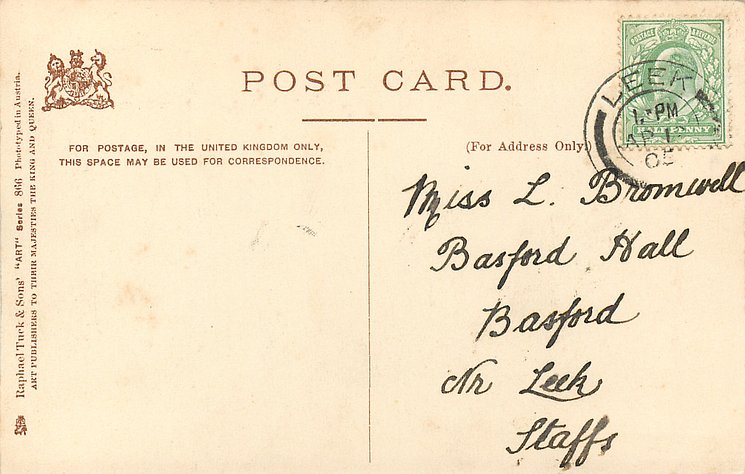 POST CARD.
FOR POSTAGE, IN THE UNITED KINGDOM ONLY,
THIS SPACE MAY BE USED FOR CORRESPONDENCE.
(For Address Only)
Raphael Tuck & Sons' "ART" Series 866 Phototyped in Austria.
ART PUBLISHERS TO THEIR MAJESTIES THE KING AND QUEEN.
POSTAGE & REVENUE
HALF PENNY
LEEK
PM
05
Miss L. Bromwell
Basford Hall
Basford
Nr Leek
Staffs